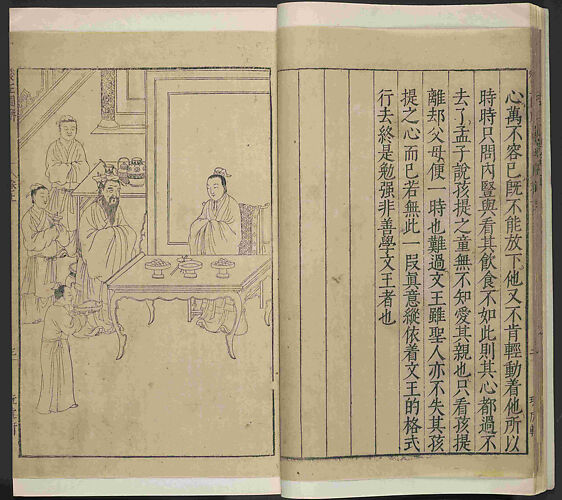 心萬不容已旣不能放下他又不肯輕動着他所以
時時只問內豎與看其飮食不如此則其心都過不
去了孟子說孩提之童無不知愛其親也只看孩提
離却父母便一時也難過文王雖聖人亦不失其孩
提之心而已若無此一叚真意縱依着文王的格式
行去終是勉强非善學文王者也